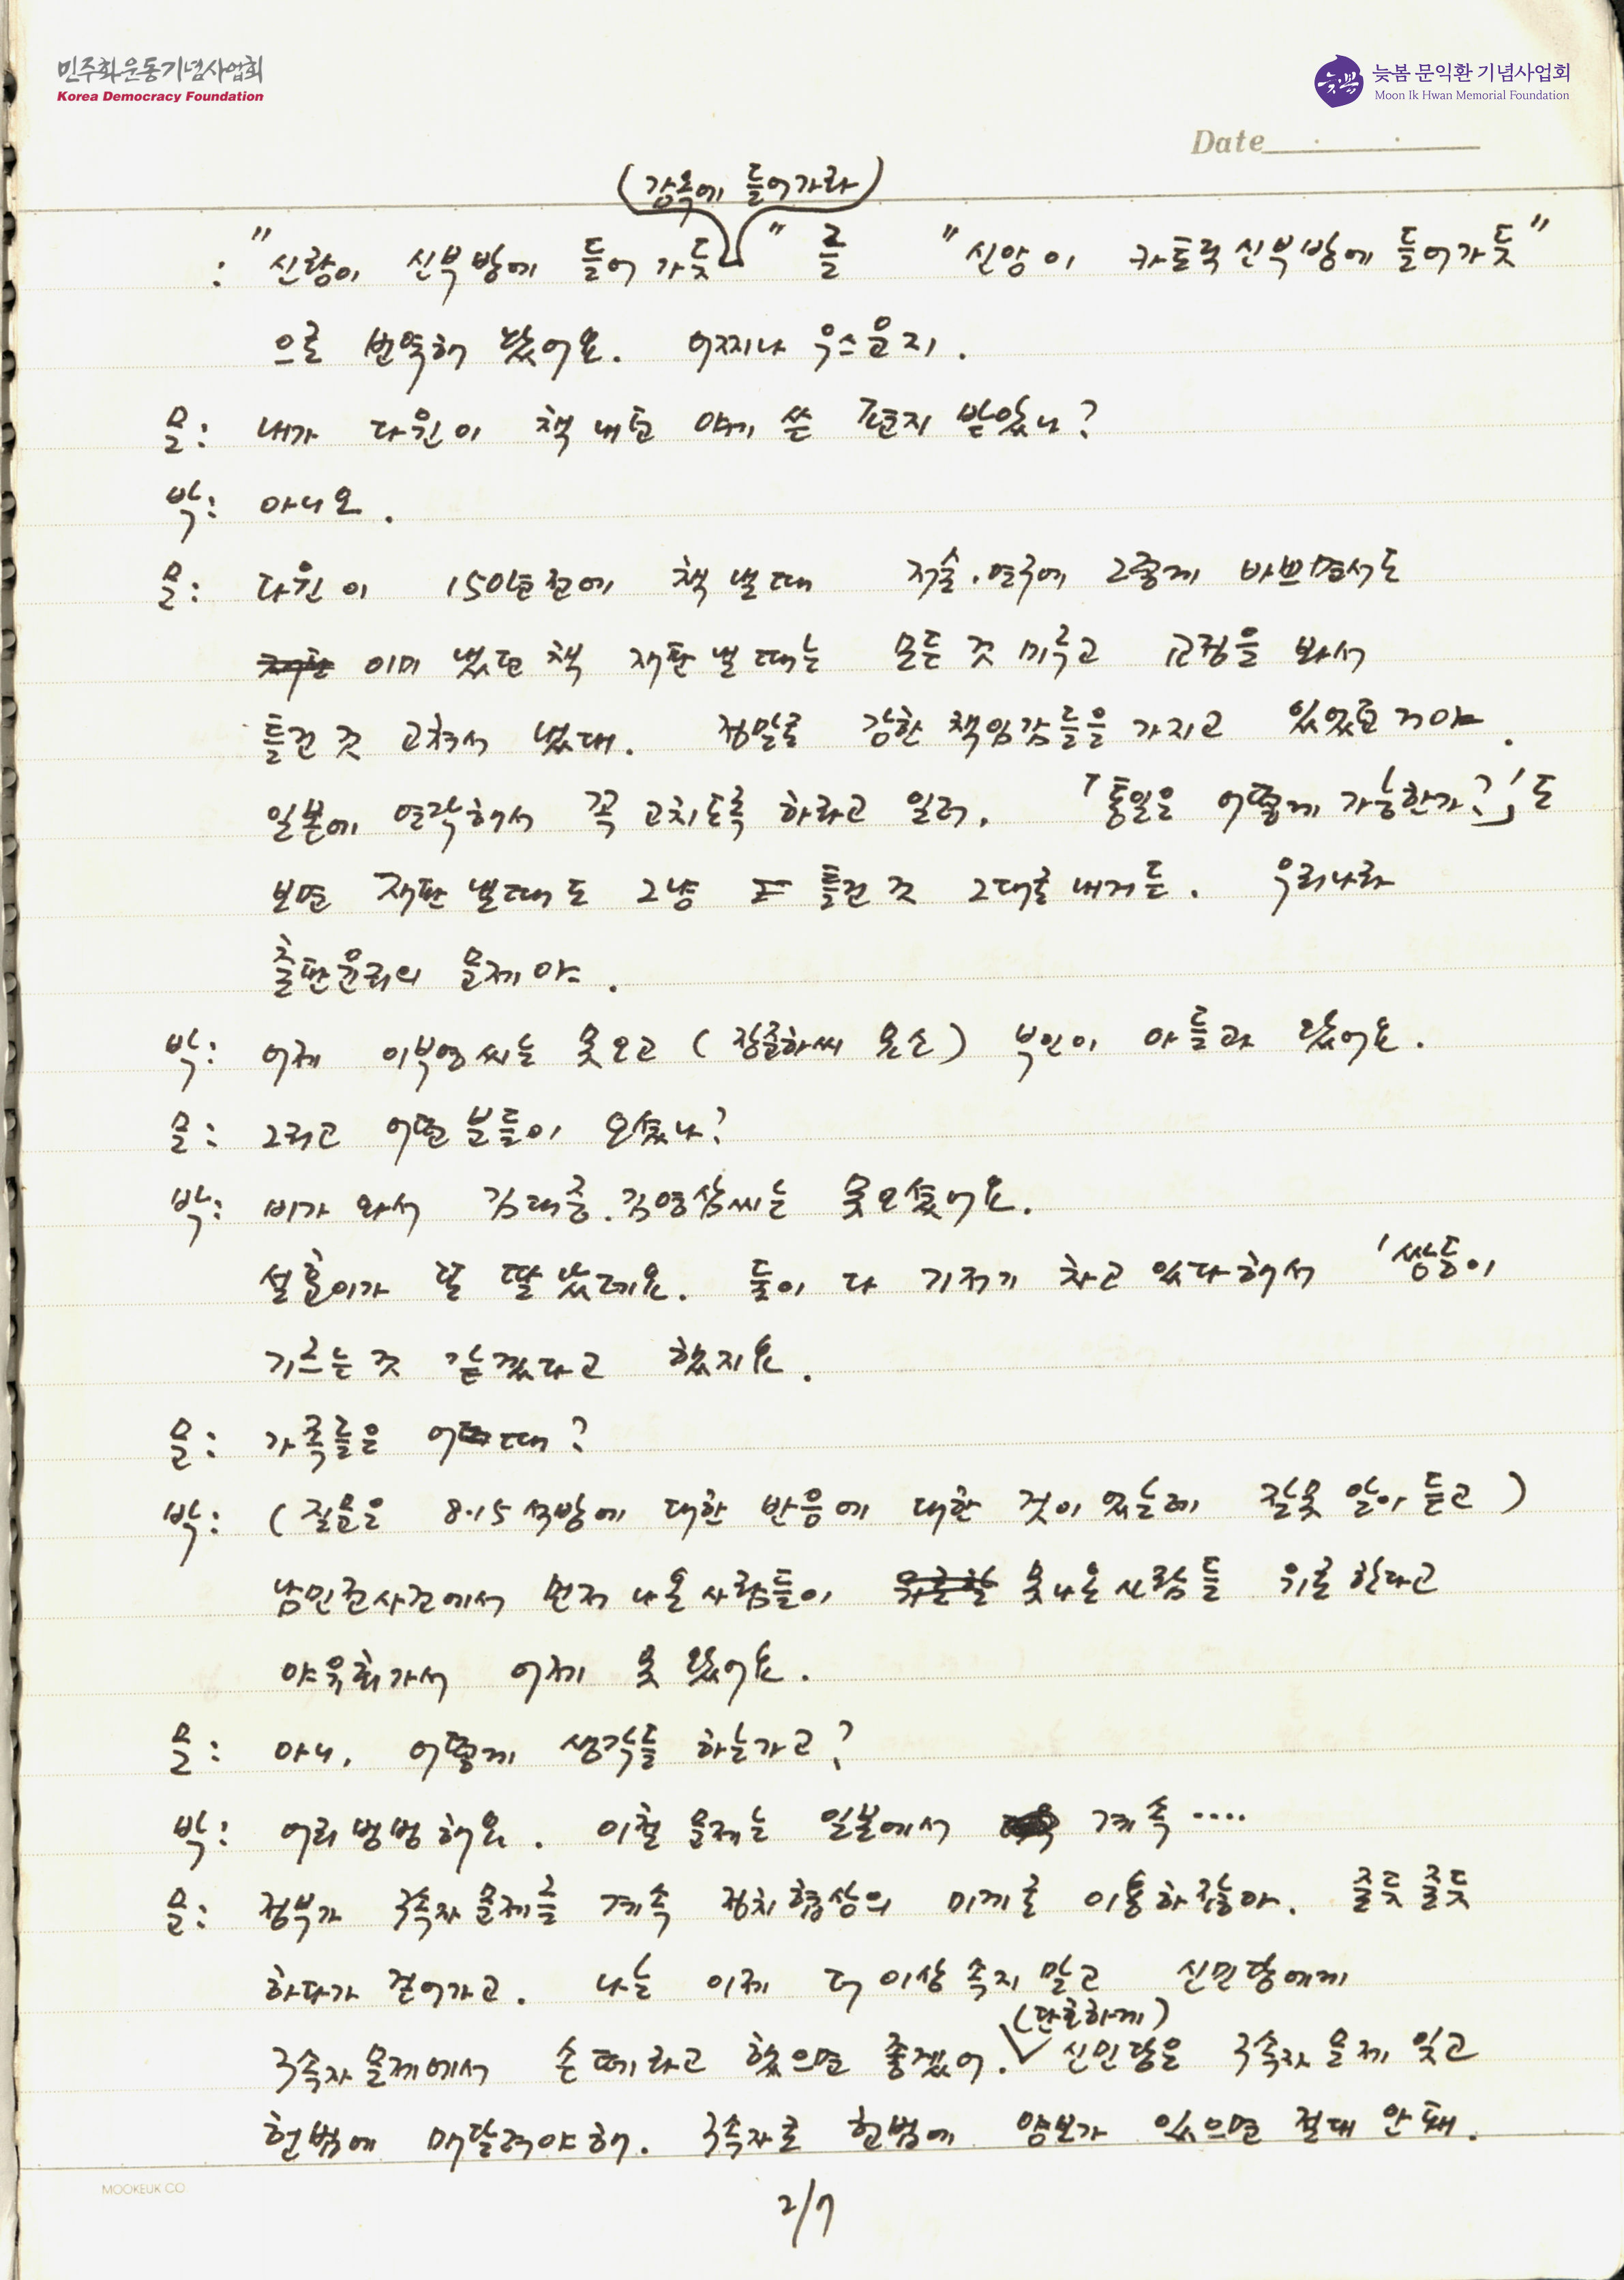 민주화운동기념사업회
Korea Democracy Foundation
늦봄
늦봄 문익환 기념사업회
Moon Ik Hwan Memorial Foundation
Date
(감옥에 들어가라)
: "신랑이 신부방에 들어가듯" 를 "신앙이 카토릭 신부방에 들어가듯"
으로 번역해 놨어요. 어찌나 우스운지.
문: 내가 다윈이 책 내던 얘기 쓴 편지 받았나?
박: 아니오.
문: 다윈이 150년전에 책 낼 때 저술.연구에 그렇게 바쁘면서도
재판 이미 냈던 책 재판 낼 때는 모든 것 미루고 교정을 봐서
틀린 것 고쳐서 냈대. 정말로 강한 책임감들을 가지고 있었던 거야.
일본에 연락해서 꼭 고치도록 하라고 일러. 「통일은 어떻게 가능한가?」도
보면 재판 낼 때도 그냥 틀린 것 그대로 내거든. 우리나라
출판윤리의 문제야.
박: 어제 이부영씨는 못오고 (장준하씨 묘소) 부인이 아들과 왔어요.
문: 그리고 어떤 분들이 오셨나?
박: 비가 와서 김대중.김영삼씨는 못오셨어요.
설훈이가 딸 낳았데요. 둘이 다 기저기 차고 있다해서 '쌍둥이
기르는 것 같겠다고 했지요.
문: 가족들은 어때?
박: (질문은 8.15 석방에 대한 반응에 대한 것이었는데 잘못 알아 듣고)
남민전사건에서 먼저 나온 사람들이 위로할 못나온 사람들 위로한다고
야유회가서 어제 못 왔어요.
문: 아니, 어떻게 생각들 하는가고?
박: 어리벙벙해요. 이철 문제는 일본에서 계속 ....
문: 정부가 구속자 문제를 계속 정치협상의 미끼로 이용하잖아. 줄듯 줄듯
하다가 걷어가고. 나는 이제 더 이상 속지 말고 신민당에게
(단호하게)
구속자 문제에서 손 떼라고 했으면 좋겠어. 신민당은 구속자 문제 잊고
헌법에 매달려야해. 구속자로 헌법에 양보가 있으면 절대 안돼.
MOOKEUK CO
2/7